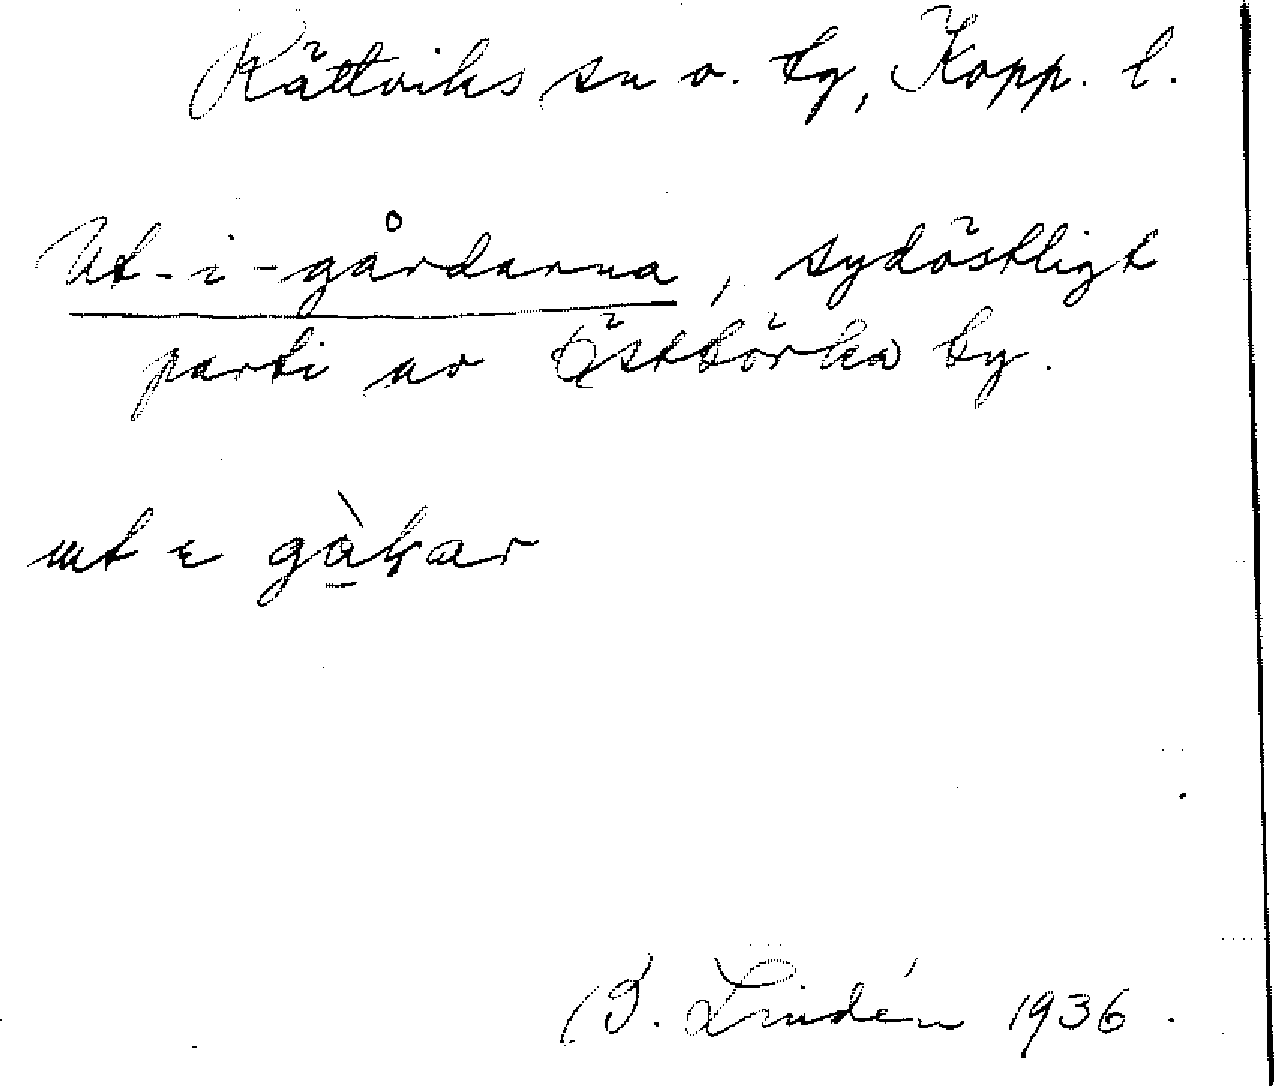 Rättviks sn o. tg, Kopp. l.
Ut-i-gårdarna, sydöstligt
parti av Östbörka by.
ut ɛ
B. Lindén 1936.